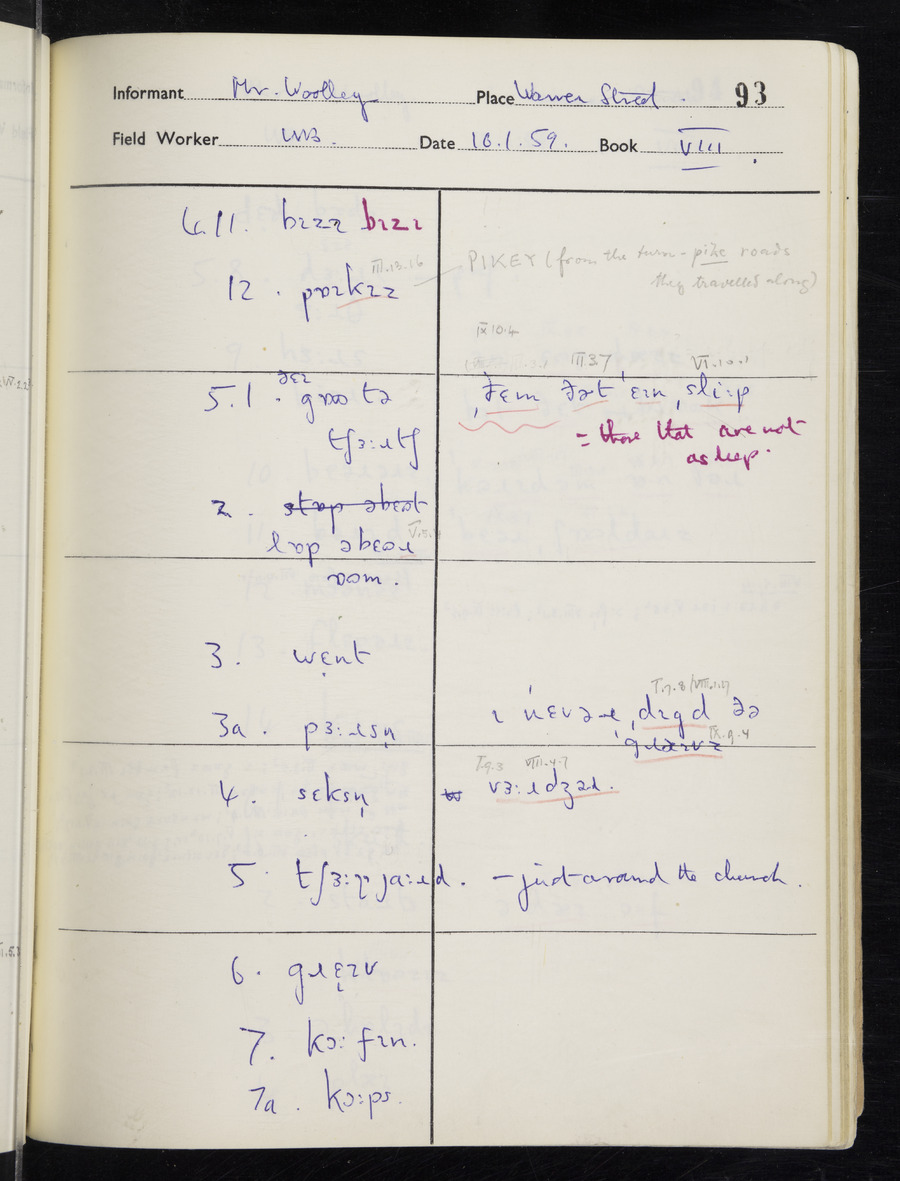 Informant Mr. Woolley Place Warren Street. 93
Field Worker WB. Date 16.1.59. Book VIII
4.11. bɪzɪ bɪzɪ
III.13.16 PIKEY (from the turn-pike roads
they travelled along)
12. pɒɪkɪz
IX 10.4
III 3 7 VI.10.1
ðɛɪ
5.1. gʊə tə
ˌðɛm ðət ˈɛɪn ˌsliːp
tʃɜːɹtʃ
= those that are not
asleep.
2. stɒp əbɛʊt
lɒp əbɛʊt
3. wɛnt
3a. pɜːɹsn̩
ɪ ˈnɛvəɹ ˌdɪgd ðə
IX.9.4
VIII.4.7
4. sɛksn̩
vɜːɹdʒəɹ.
5. tʃɜːtʃ jɑːɹd. – just around the church.
6. gɹɛɪv
7. kɔːfɪn.
7a. kɔːps.